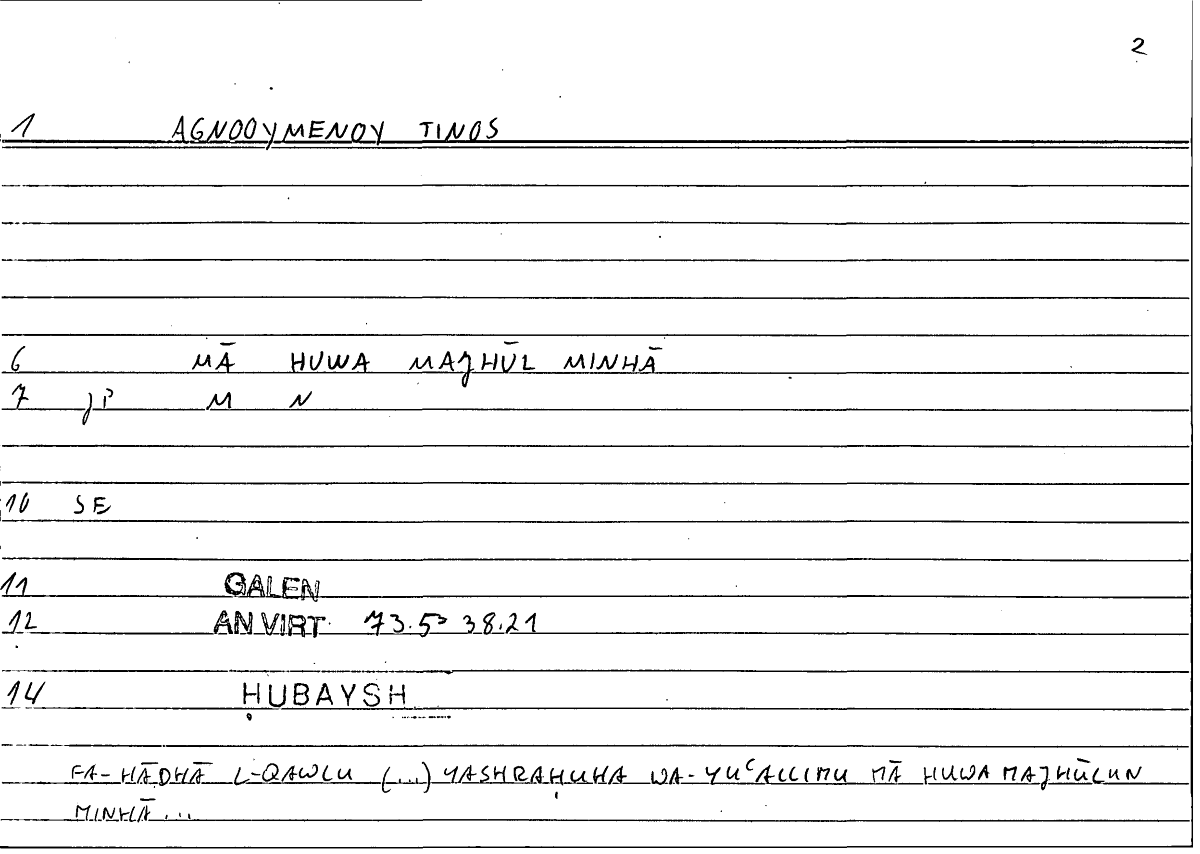 2
1 AGNOOYMENOY TINOS
6 MĀ HUWA MAJHŪL MINHĀ
7 JP M N
10 SE
11 GALEN
12 AN VIRT 73.5 38.21
14 ḤUBAYSH
FA-HĀDHĀ L-QAWLU (...) YASHRAḤUHA WA-YUʿALLIMU MĀ HUWA MAJHŪLUN
MINHĀ...